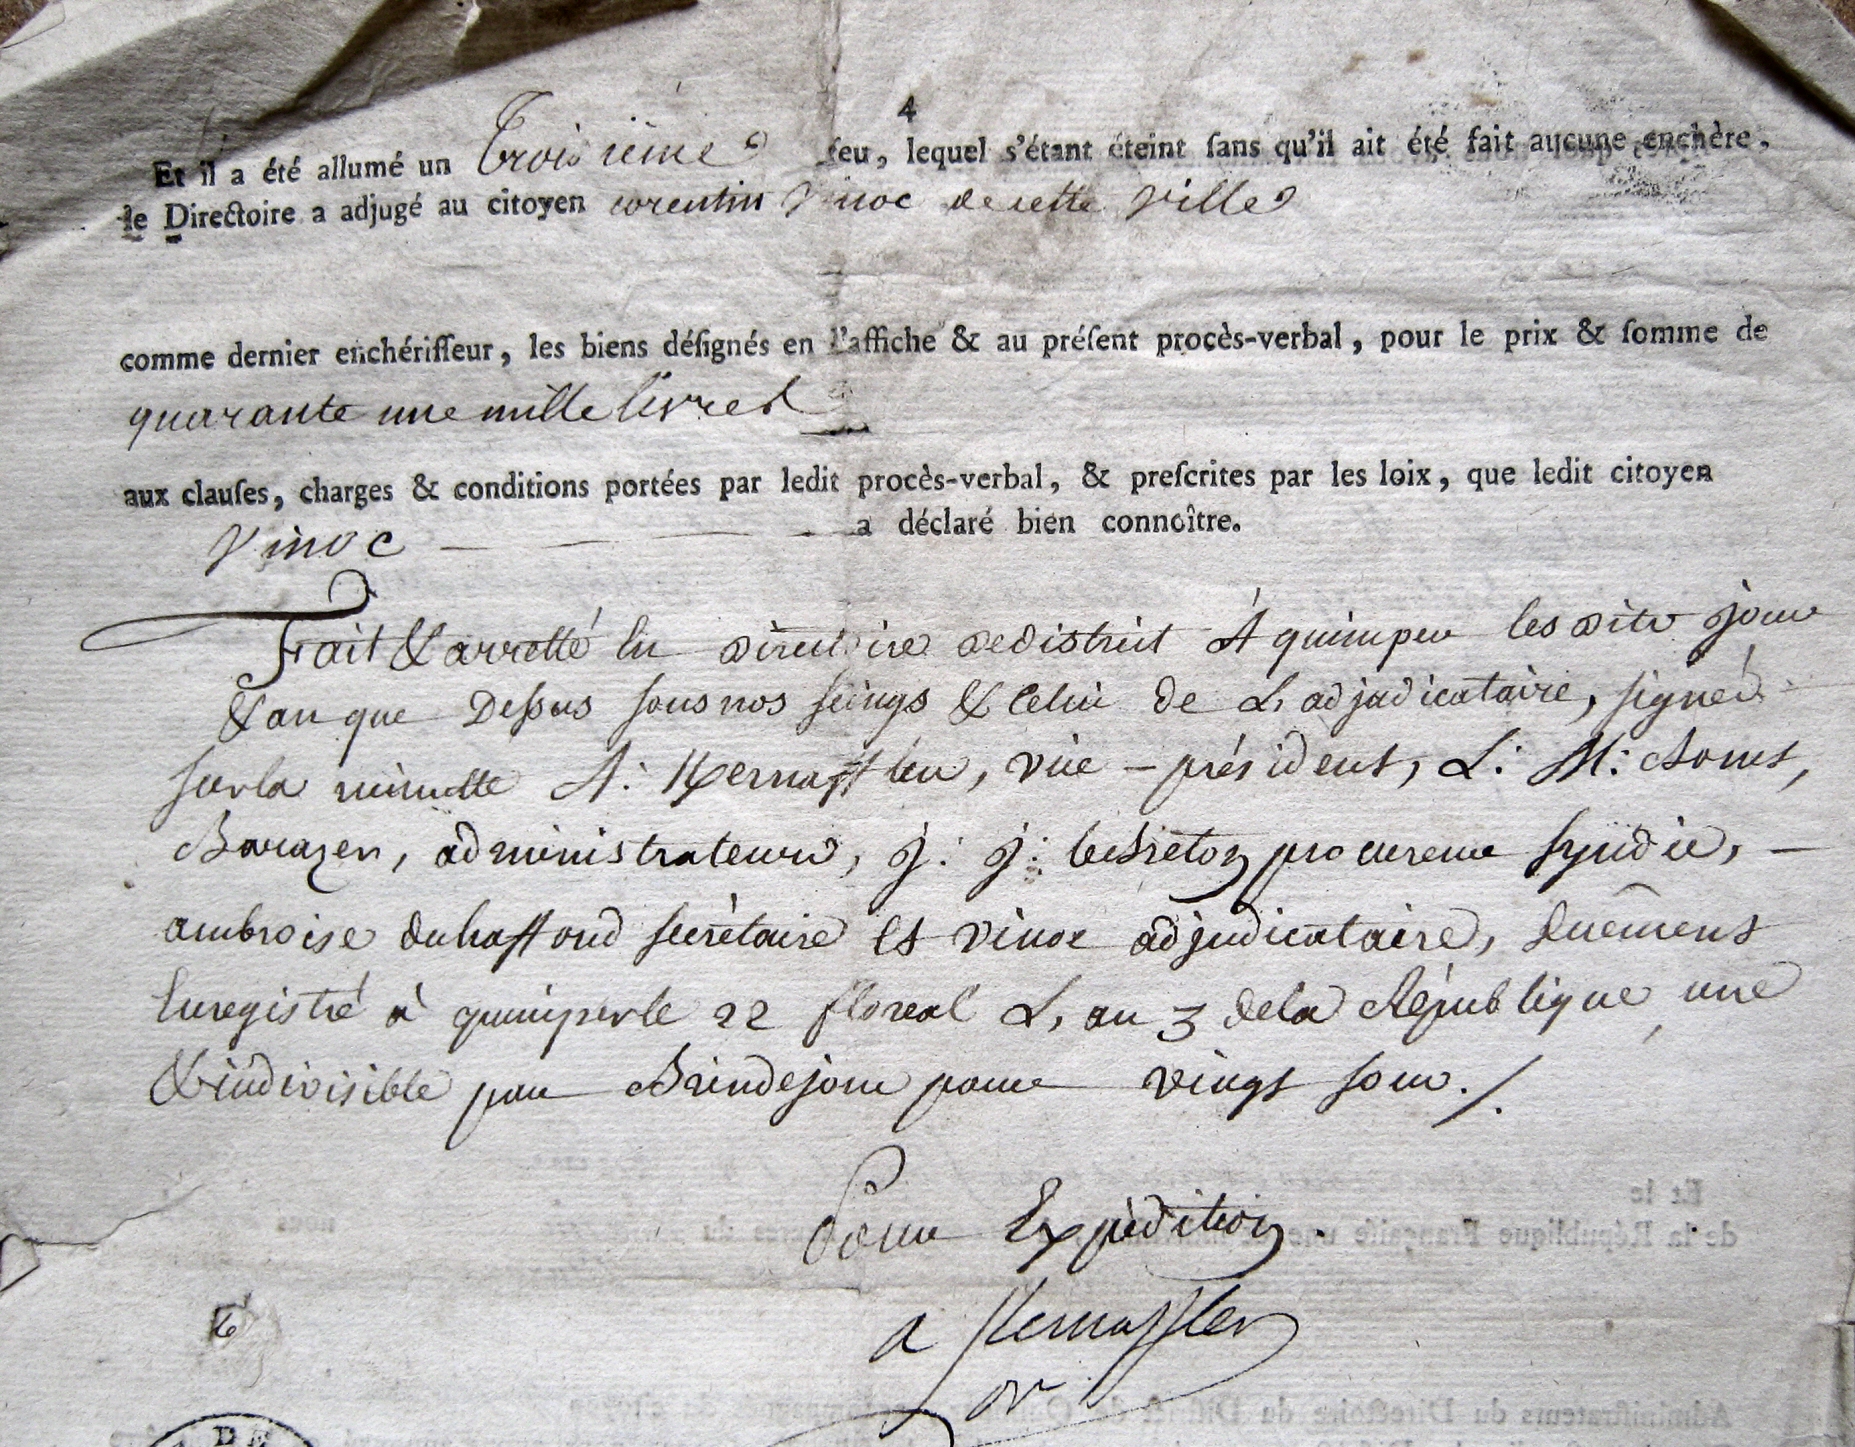 4
Et il a été allumé un Troisiéme feu, lequel s'étant éteint ſans qu'il ait été fait aucune enchère,
le Directoire a adjugé au citoyen corentin Vinoc de cette Ville
comme dernier enchériſſeur, les biens déſignés en l'affiche & au préſent procès-verbal, pour le prix & ſomme de
quarante une mille livres
aux clauſes, charges & conditions portées par ledit procès-verbal, & preſcrites par les loix, que ledit citoyen
Vinoc — — — — a déclaré bien connoître.
Fait & arretté En directoire de district A quimper les dits jour
& an que Dessus sous nos seings & Celui de L'adjudicataire, signés
sur la minutte A: Kernafflen, vice-président, L: M:
administrateurs, J: J: Lebreton procureur syndic, —
ambroise duhaffond secrétaire Et vinoc adjudicataire, duëment
Enregistré à quimperle 22 floreal L'an 3 de la République une
& indivisible par Brindejonc pour vingt sous ./.
Pour Expédition.
a Kernafflen